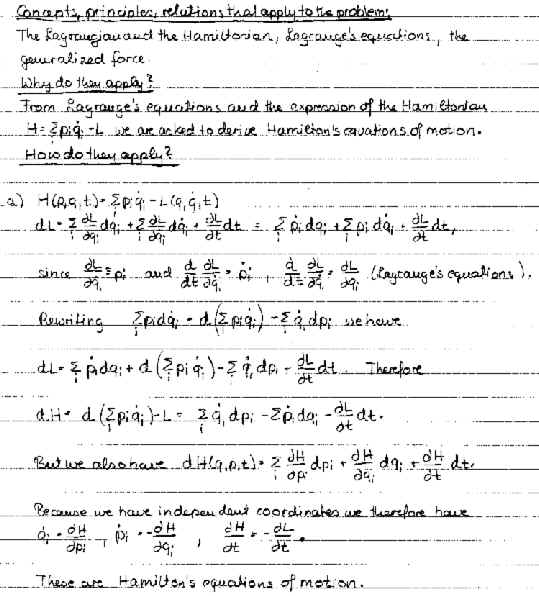 Concepts, principles, relations that apply to the problem:
The Lagrangian and the Hamiltonian, Lagrange's equations, the
generalized force
Why do they apply?
From Lagrange's equations and the expression of the Hamiltonian
H = Σpᵢq̇ᵢ - L we are asked to derive Hamilton's equations of motion.
How do they apply?
a) H(p,q,t) = Σpᵢq̇ᵢ - L(q,q̇,t)
dL = Σᵢ ∂L/∂qᵢ dqᵢ + Σᵢ ∂L/∂q̇ᵢ dq̇ᵢ + ∂L/∂t dt = Σᵢ ṗᵢdqᵢ + Σᵢ pᵢdq̇ᵢ + ∂L/∂t dt,
since ∂L/∂q̇ᵢ = pᵢ and d/dt ∂L/∂q̇ᵢ = ṗᵢ, d/dt ∂L/∂q̇ᵢ = ∂L/∂qᵢ (Lagrange's equations).
Rewriting Σᵢ pᵢdq̇ᵢ = d(Σᵢ pᵢq̇ᵢ) - Σᵢ q̇ᵢdpᵢ we have
dL = Σᵢ ṗᵢdqᵢ + d(Σᵢ pᵢq̇ᵢ) - Σᵢ q̇ᵢdpᵢ - ∂L/∂t dt. Therefore
dH = d(Σᵢ pᵢq̇ᵢ) - L = Σᵢ q̇ᵢdpᵢ - Σṗᵢdqᵢ - ∂L/∂t dt.
But we also have dH(q,p,t) = Σᵢ ∂H/∂pᵢ dpᵢ + ∂H/∂qᵢ dqᵢ + ∂H/∂t dt.
Because we have independent coordinates we therefore have
q̇ᵢ = ∂H/∂pᵢ, ṗᵢ = -∂H/∂qᵢ, ∂H/∂t = -∂L/∂t.
These are Hamilton's equations of motion.